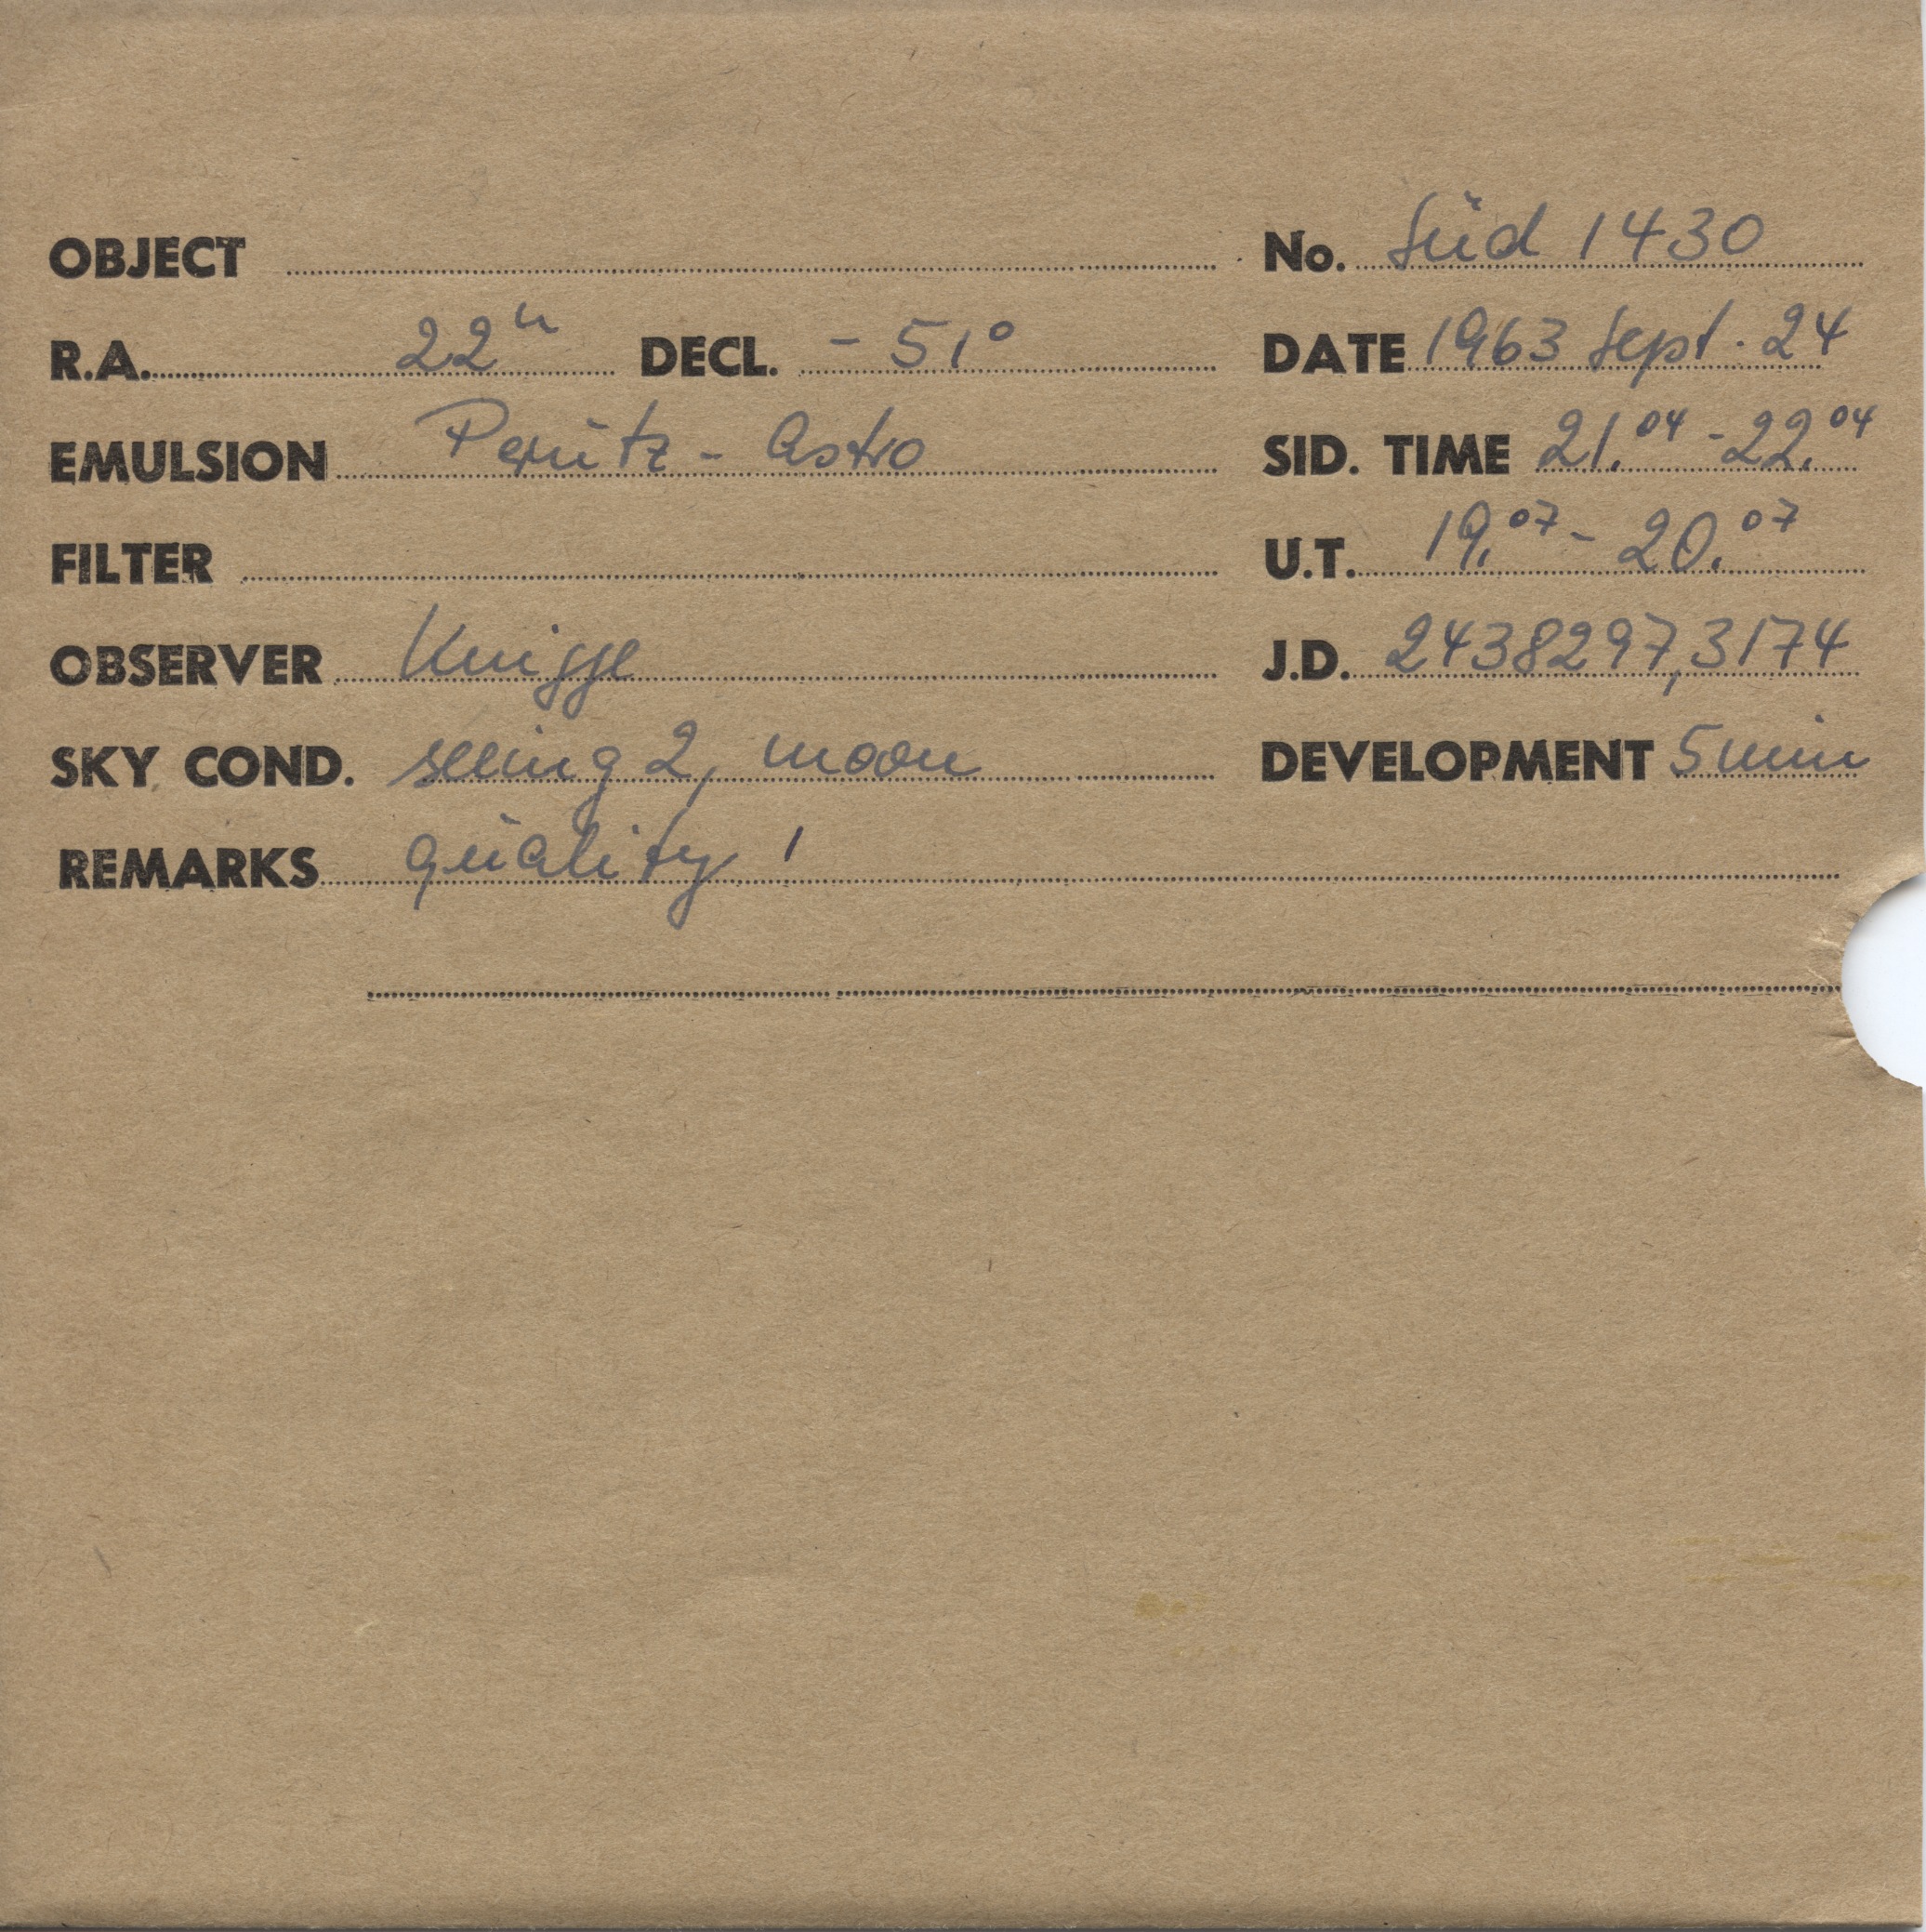 OBJECT No. Süd 1430
R.A. 22h DECL. - 51° DATE 1963 Sept. 24
EMULSION Perutz - Astro SID. TIME 21.04 - 22.04
FILTER U.T. 19.07 - 20.07
OBSERVER Knigge J.D. 2438297,3174
SKY COND. seeing 2, moon DEVELOPMENT 5 min
REMARKS quality 1